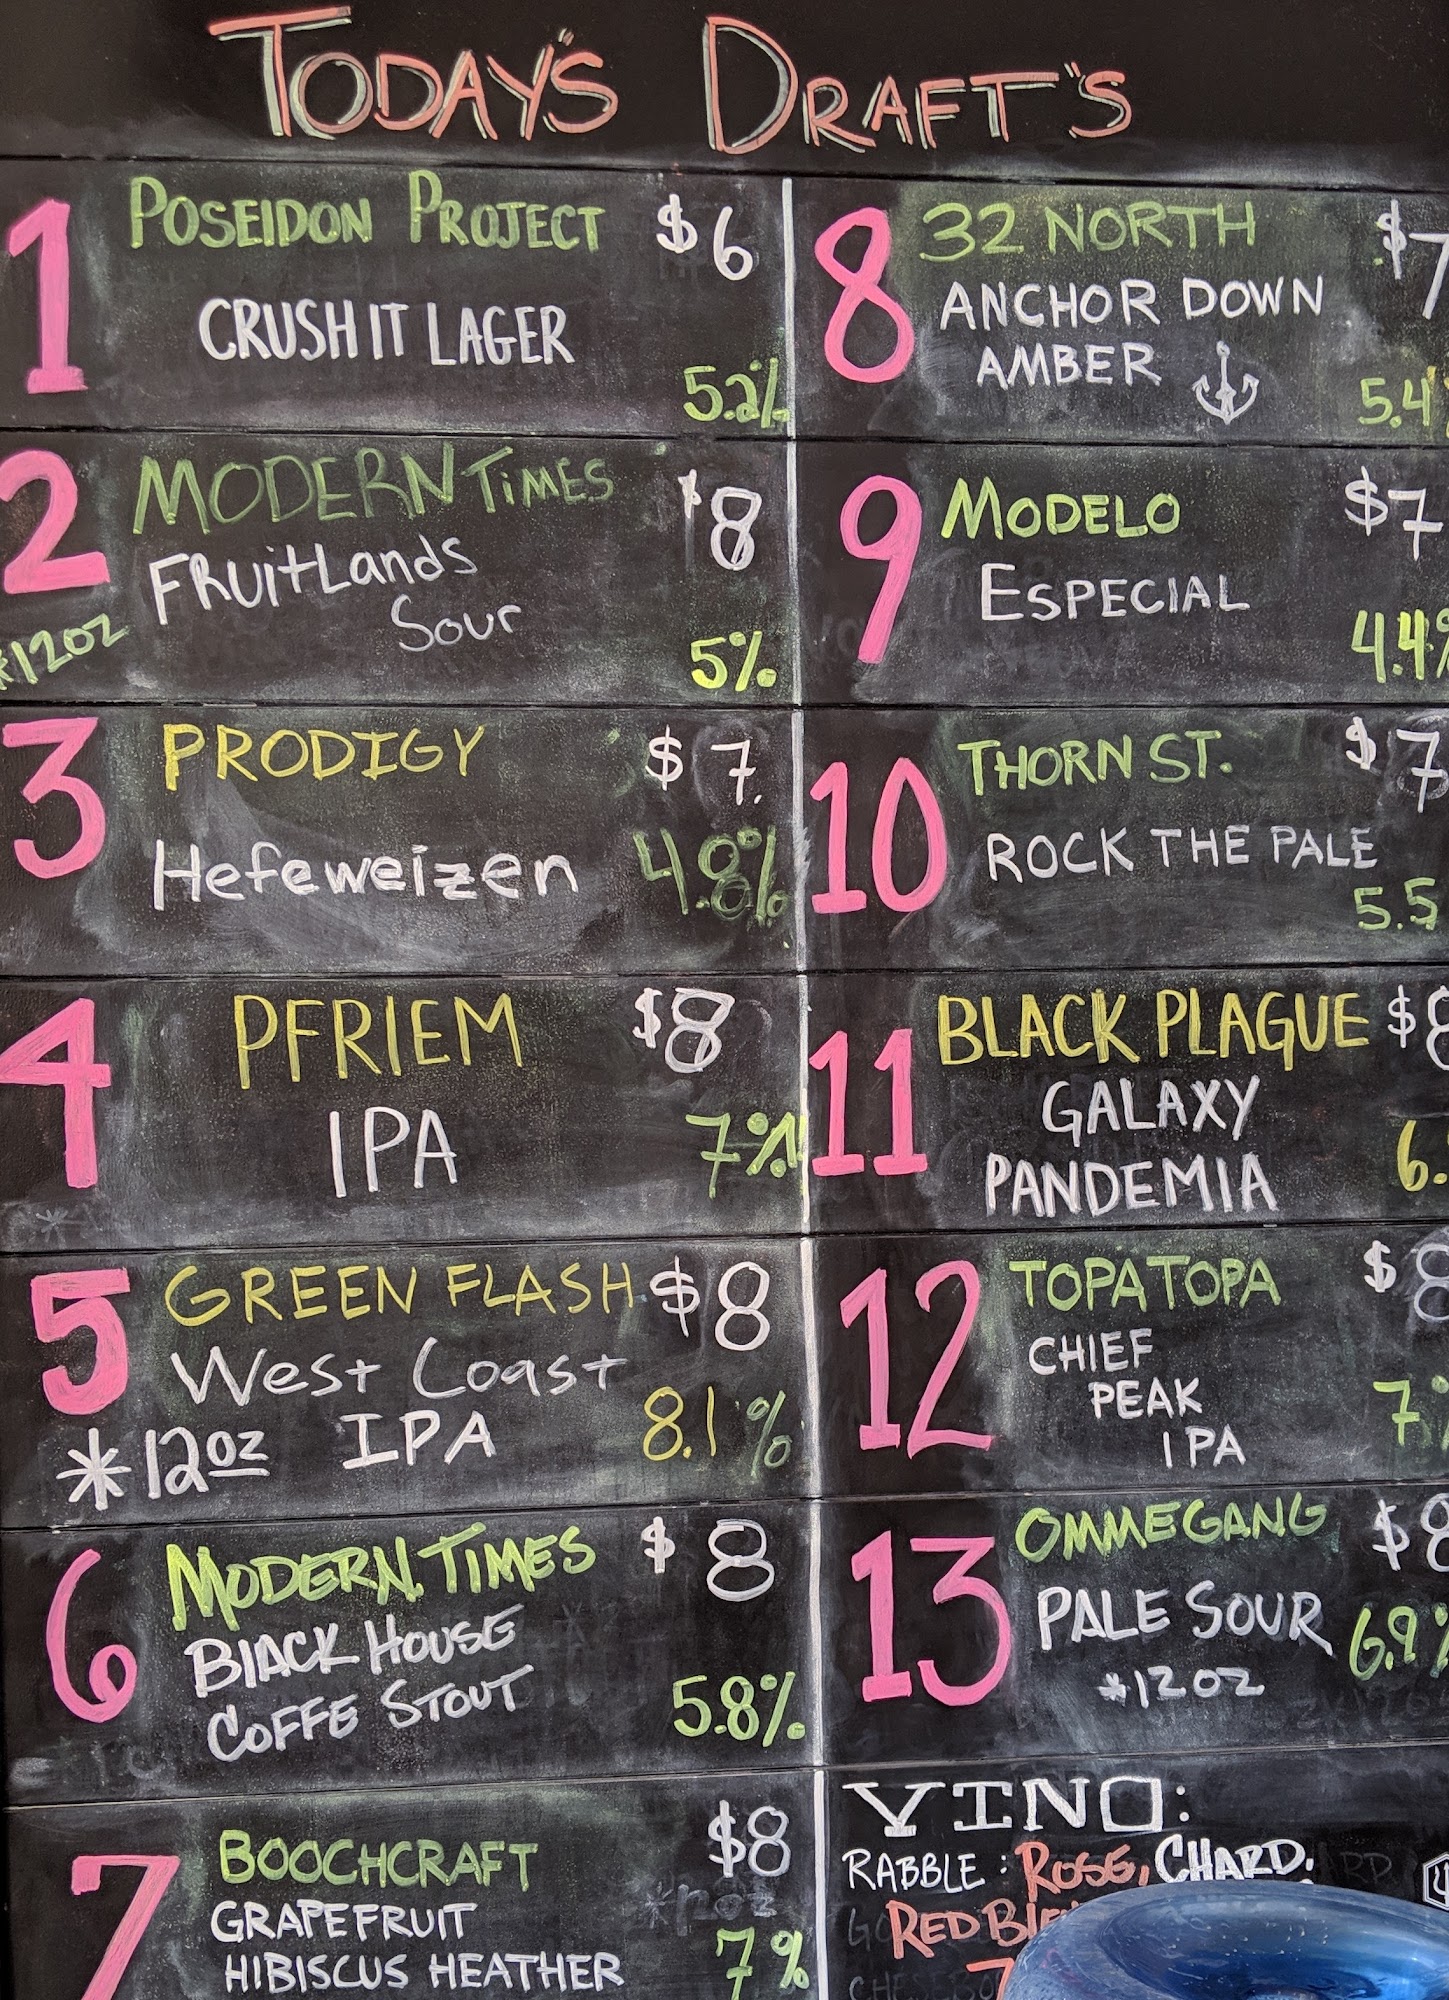 TODAY'S DRAFT'S
1 POSEIDON PROJECT $6
CRUSH IT LAGER
5.2%
2 MODERN TIMES $8
FRUITLANDS
SOUR
*12OZ 5%
3 PRODIGY $7.
Hefeweizen 4.8%
4 PFRIEM $8
IPA 7%
5 GREEN FLASH $8
West Coast
*12oz IPA 8.1%
6 MODERN TIMES $8
BLACK HOUSE
COFFE STOUT 5.8%
7 BOOCHCRAFT $8
GRAPEFRUIT *12OZ
HIBISCUS HEATHER 7%
8 32 NORTH $7
ANCHOR DOWN
AMBER 5.4%
9 MODELO $7
ESPECIAL
4.4%
10 THORN ST. $7
ROCK THE PALE
5.5
11 BLACK PLAGUE $8
GALAXY
PANDEMIA 6.
12 TOPA TOPA $8
CHIEF
PEAK 7%
IPA
13 OMMEGANG $8
PALE SOUR 6.9%
*12OZ
VINO:
RABBLE: ROSE, CHARD,
RED